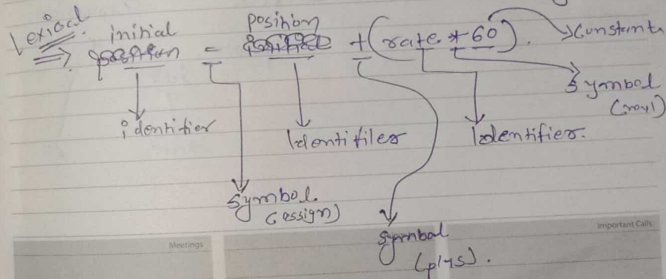 Lexical.
initial = position + (rate * 60).
Constant
Symbol
identifier
Identifiler
Identifier.
Symbol.
(assign)
Symbol
(plys).
Meetings
Important Calls